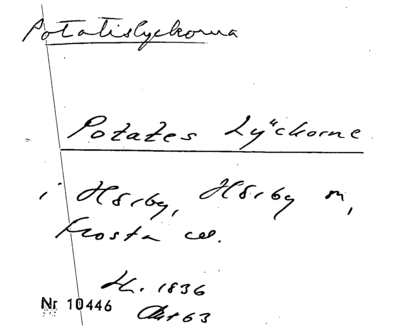 Potatislyckorna
Potates Lÿckorne
i Hörby, Hörby sn,
Frosta hd.
LH. 1836
Akt 63
Nr 10446